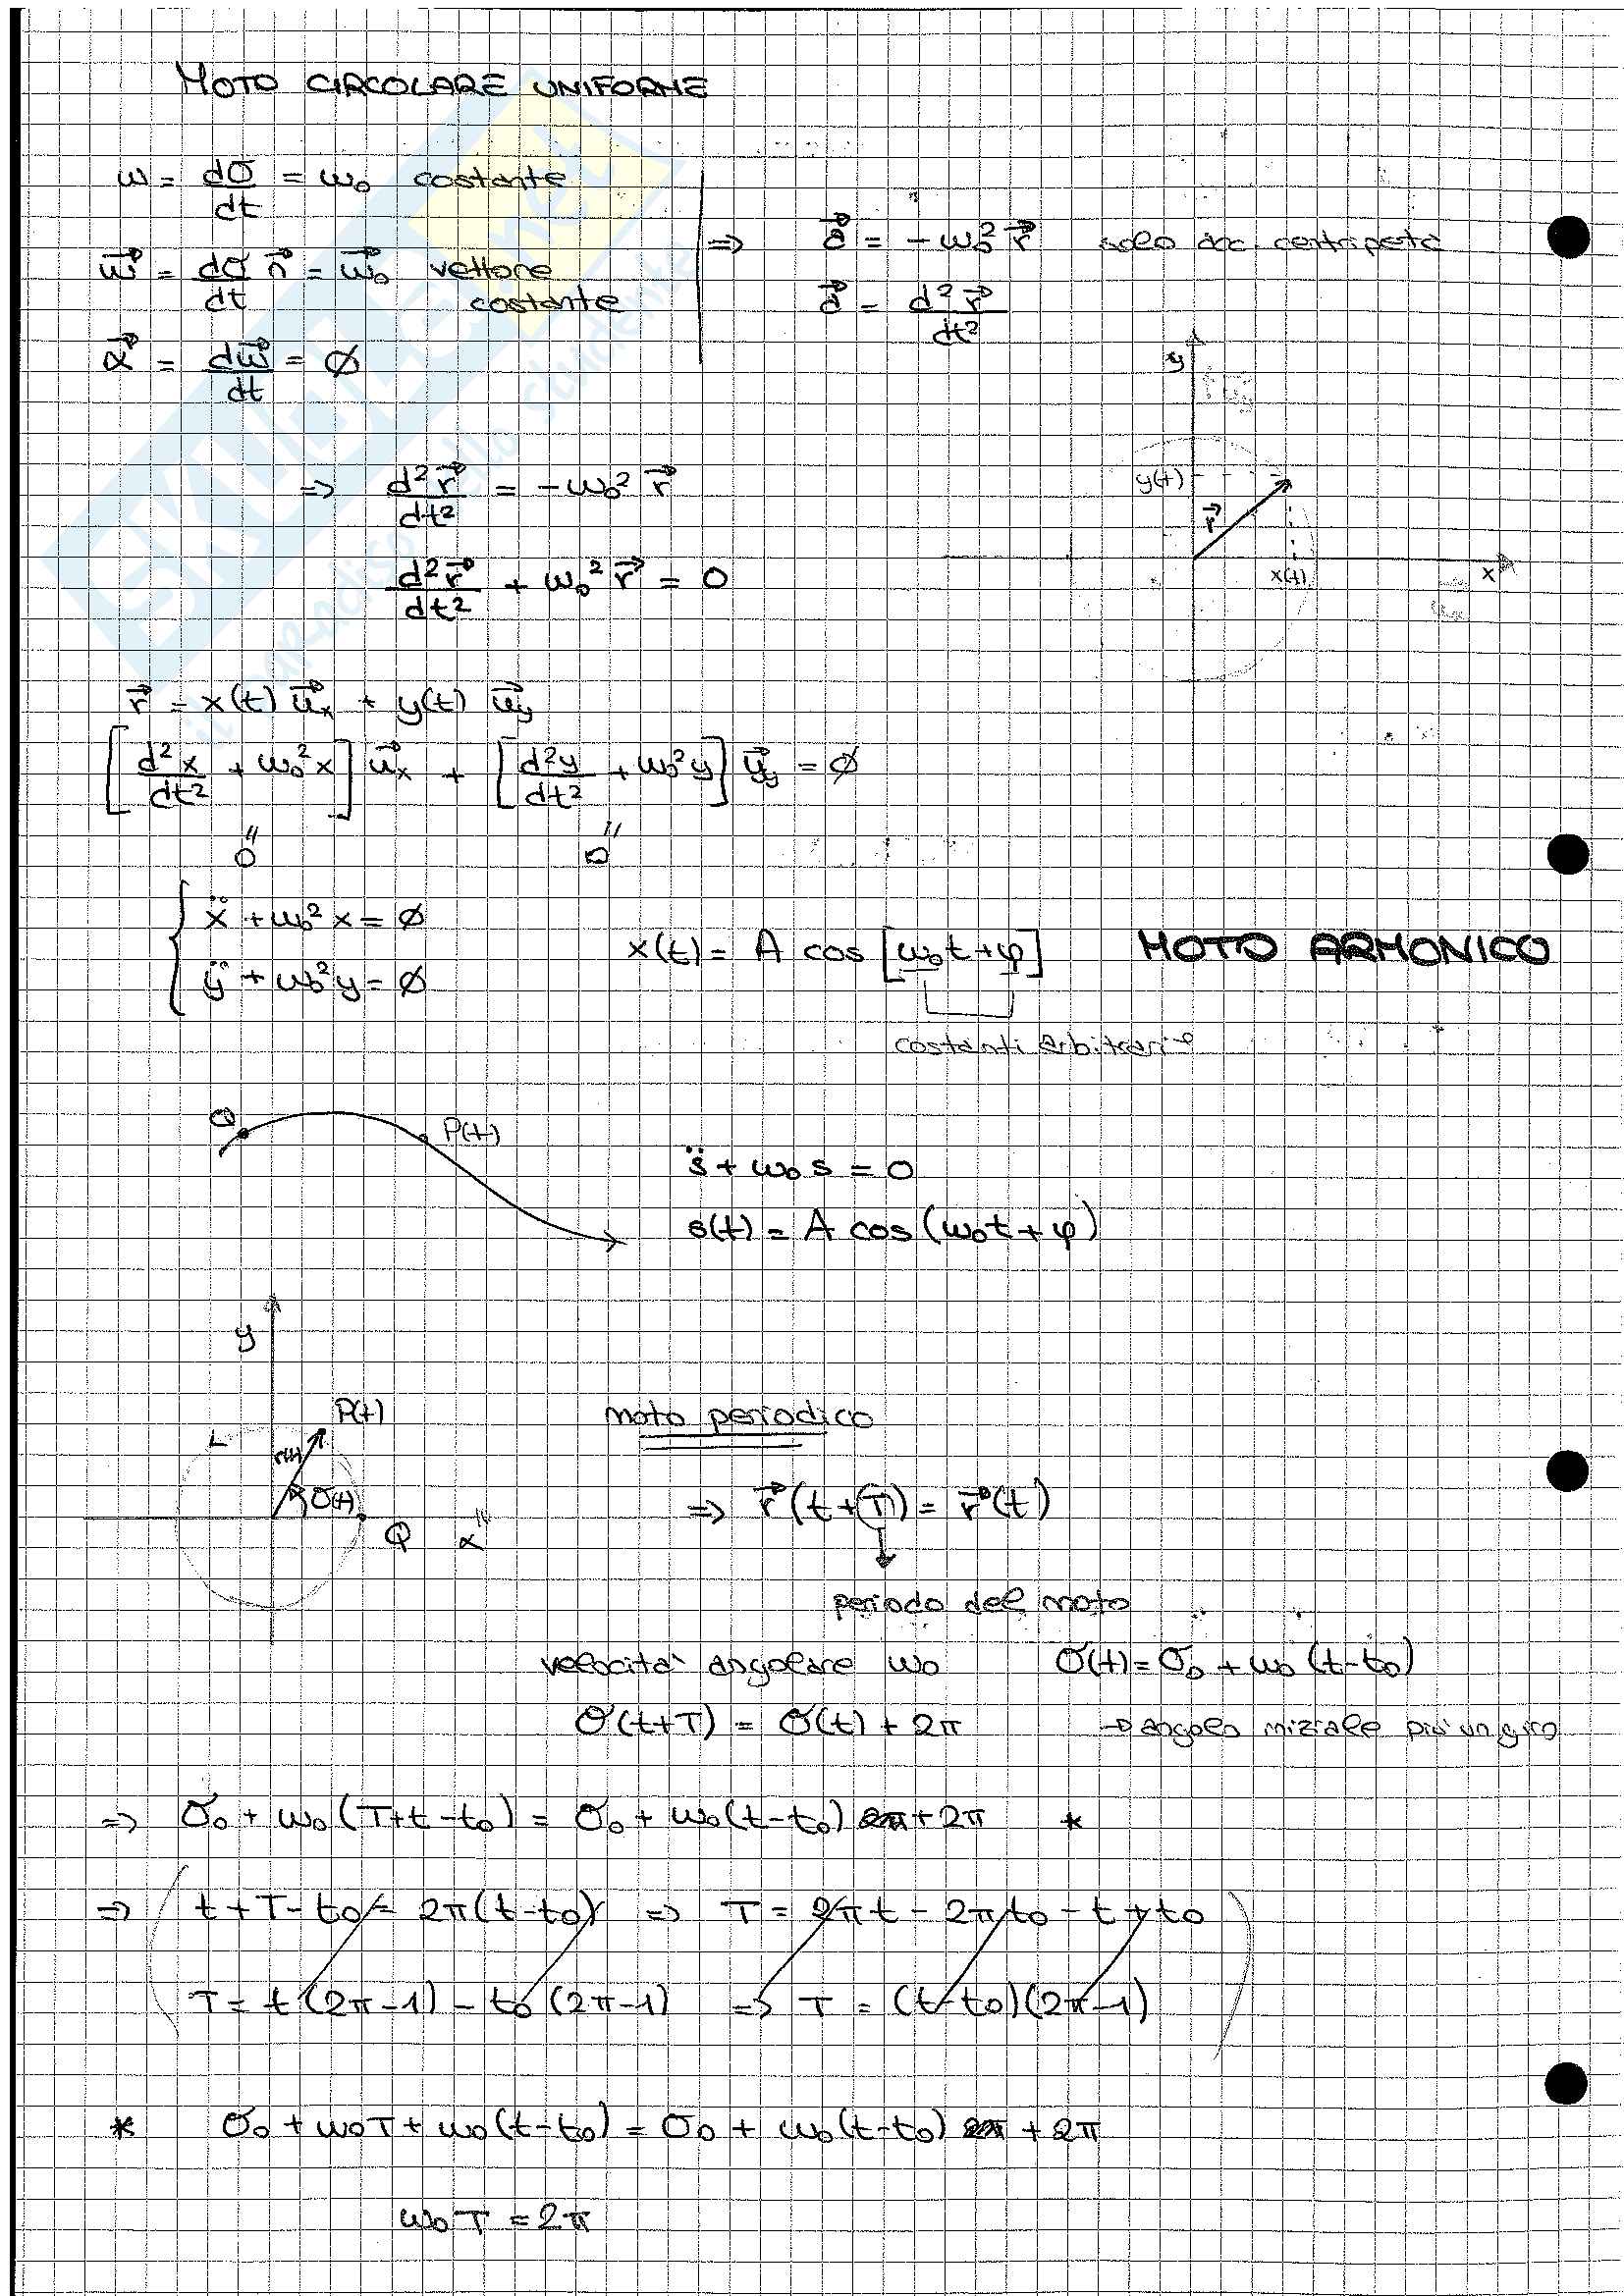 MOTO CIRCOLARE UNIFORME
ω = dσ/dt = ω₀ costante
ω⃗ = dσ/dt n⃗ = ω⃗₀ vettore costante
α⃗ = dω⃗/dt = ∅
⇒ a⃗ = -ω₀² r⃗ solo acc. centripeta
a⃗ = d²r⃗/dt²
y
y(t)
r⃗
x(t)
x
⇒ d²r⃗/dt² = -ω₀² r⃗
d²r⃗/dt² + ω₀² r⃗ = 0
r⃗ = x(t) u⃗x + y(t) u⃗y
[d²x/dt² + ω₀²x] u⃗x + [d²y/dt² + ω₀²y] u⃗y = ∅
0 0
ẍ + ω₀² x = ∅
ÿ + ω₀² y = ∅
x(t) = A cos [ω₀t + φ] MOTO ARMONICO
costanti arbitrarie
Q P(t)
s̈ + ω₀ s = 0
s(t) = A cos (ω₀t + φ)
y
P(t)
r(t)
σ(t)
Q
moto periodico
⇒ r⃗(t+T) = r⃗(t)
periodo del moto
velocità angolare ω₀ σ(t) = σ₀ + ω₀ (t-t₀)
σ(t+T) = σ(t) + 2π → angolo iniziale più un giro
⇒ σ₀ + ω₀ (T+t-t₀) = σ₀ + ω₀ (t-t₀) + 2π *
⇒ (t + T - t₀ = 2π (t-t₀) ⇒ T = 2πt - 2πt₀ - t + t₀
T = t (2π-1) - t₀ (2π-1) ⇒ T = (t-t₀)(2π-1))
* σ₀ + ω₀T + ω₀ (t-t₀) = σ₀ + ω₀ (t-t₀) + 2π
ω₀ T = 2π